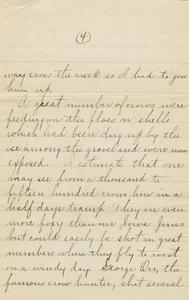 (4)
way cross the creek so I had to give
him up.
A great number of crows were
feeding on the floes on shells
which had been dug up by the
ice among the gravel and were now
exposed. I estimate that one
may see from a thousand to
fifteen hundred crows here in a
half days tramp. They are even
more foxy than our Iowa Jims
but could easily be shot in great
numbers when they fly to roost
on a windy day. George Ory, the
famous crow hunter, shot several